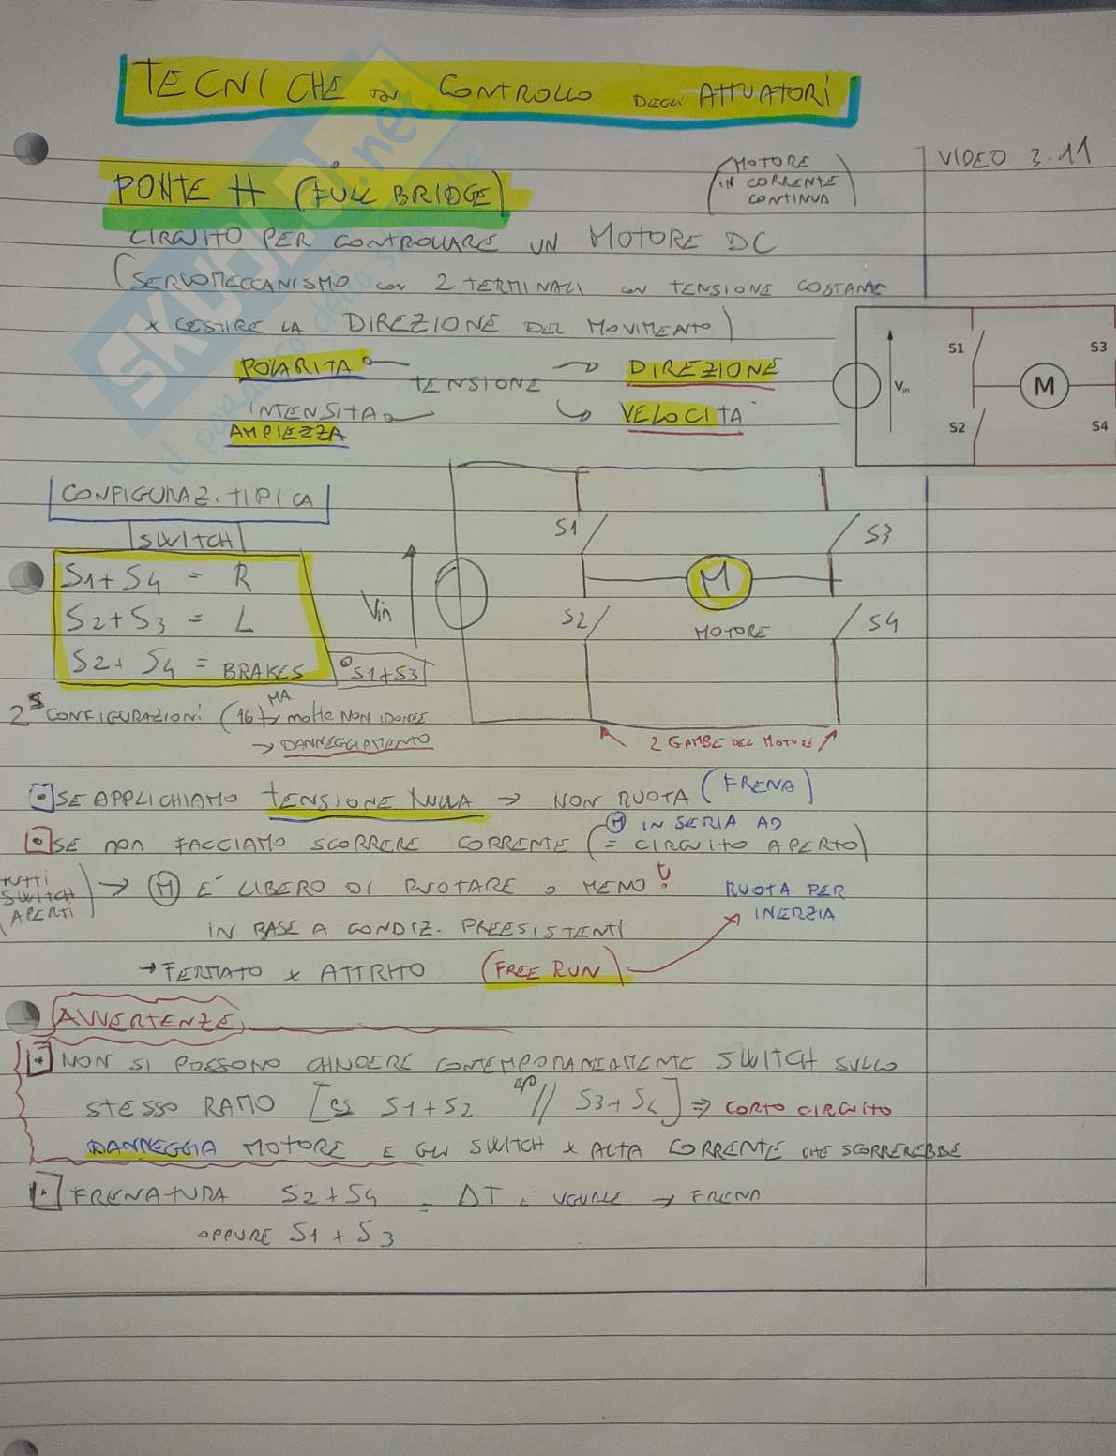 TECNICHE DI CONTROLLO DEGLI ATTUATORI
VIDEO 3.11
PONTE H (FULL BRIDGE)
MOTORE
IN CORRENTE
CONTINUA
CIRCUITO PER CONTROLLARE UN MOTORE DC
(SERVOMECCANISMO con 2 TERMINALI con TENSIONE COSTANTE
x GESTIRE LA DIREZIONE DEL MOVIMENTO)
POLARITA' TENSIONE DIREZIONE
INTENSITA VELOCITA'
AMPIEZZA
S1 S3
Vin M
S2 S4
CONFIGURAZ. TIPICA
SWITCH
S1+S4 = R
S2+S3 = L
S2+S4 = BRAKES o S1+S3
S1 S3
Vin M
S2 MOTORE S4
2 CONFIGURAZIONI (16) MA
→ molte NON IDONEE
→ DANNEGGIAMENTO
2 GAMBE DEL MOTORE
SE APPLICHIAMO TENSIONE NULLA → NON RUOTA (FRENA)
SE non FACCIAMO SCORRERE CORRENTE (= CIRCUITO APERTO)
M IN SERIA AD
TUTTI
SWITCH
APERTI
→ M E' LIBERO DI RUOTARE o MENO!
IN BASE A CONDIZ. PREESISTENTI
→ FERMATO x ATTRITO (FREE RUN)
RUOTA PER
INERZIA
AVVERTENZE
NON SI POSSONO CHIUDERE CONTEMPORANEAMENTE SWITCH SULLO
STESSO RAMO [es S1+S2 // S3+S4] ⇒ CORTO CIRCUITO
DANNEGGIA MOTORE E GLI SWITCH x ALTA CORRENTE CHE SCORREREBBE
FRENATURA S2+S4 = ΔT UGUALE → FRENO
OPPURE S1 + S3
SKUOLA.net